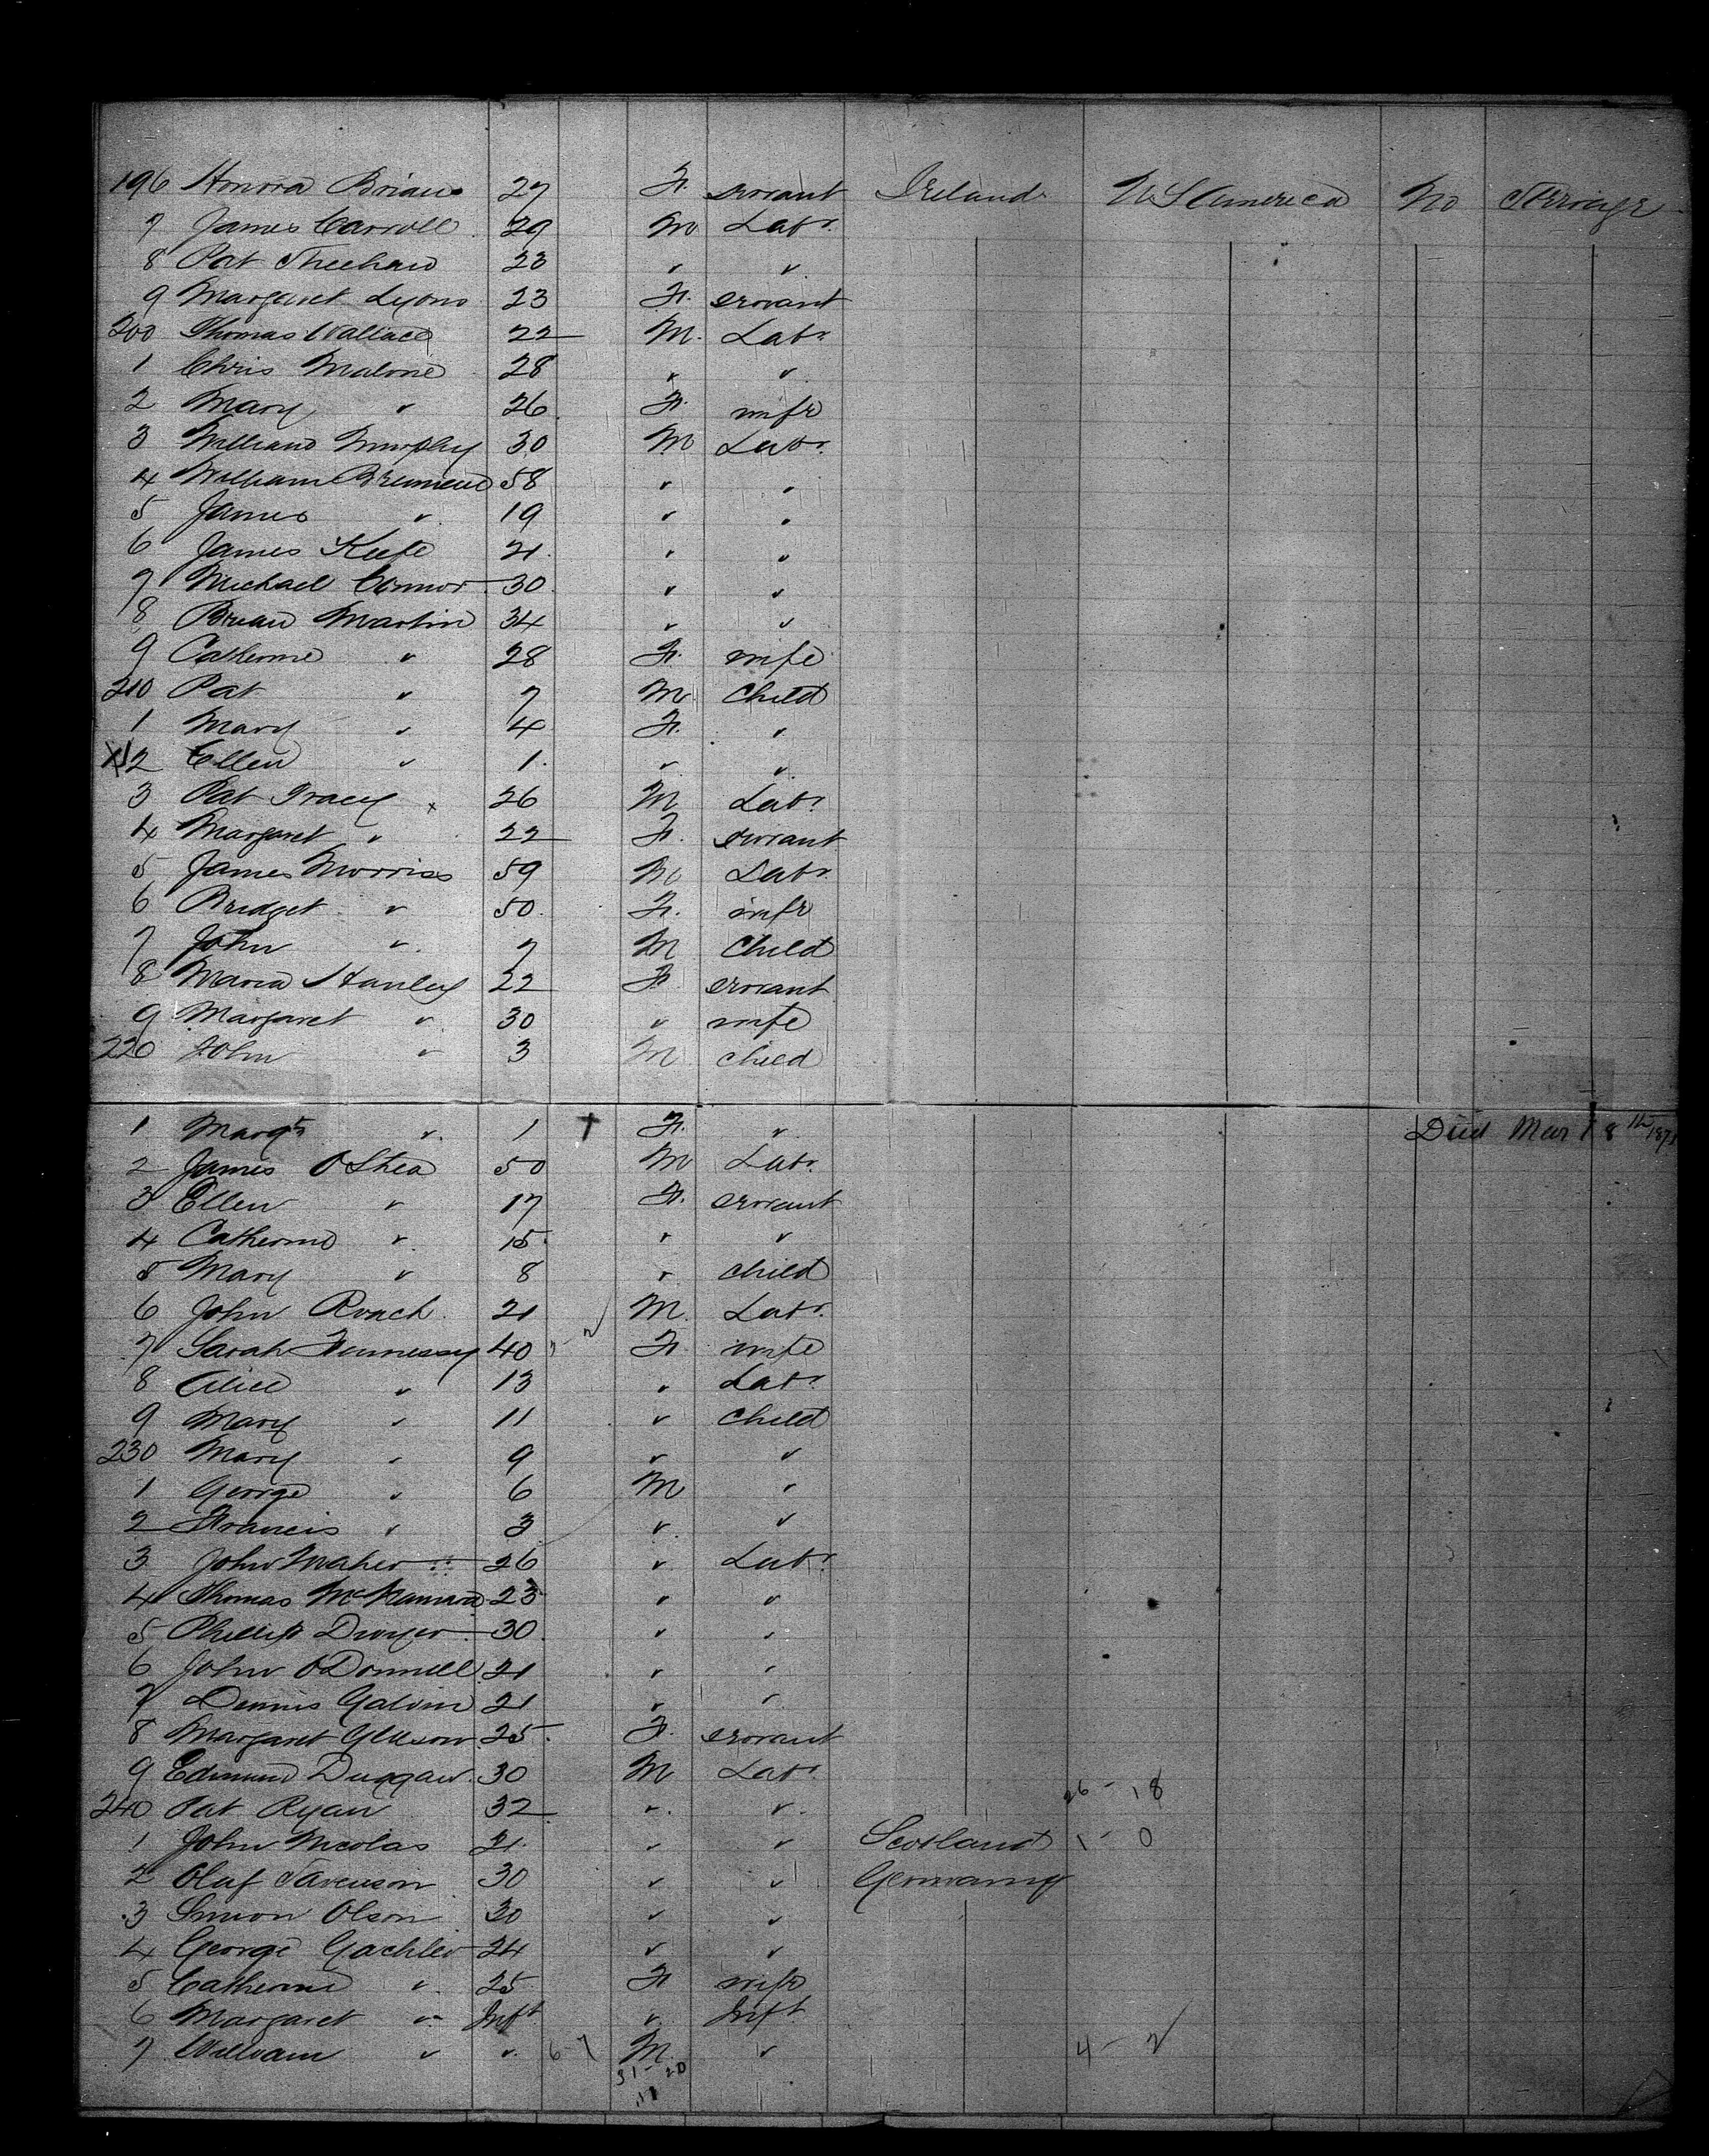 196 Honora Brian 27 F. servant Ireland U S America No Steerage
7 James Carroll 29 M Labr.
8 Pat Sheehan 23 " "
9 Margaret Lyons 23 F. servant
200 Thomas Wallace 22 M. Labr.
1 Chris Malone 28 " "
2 Mary " 26 F. wife
3 William Murphy 30 M Labr.
4 William 58 " "
5 James " 19 " "
6 James Keefe 21 " "
7 Michael Connor 30 " "
8 Martin 34 " "
9 Catherine " 28 F. wife
210 Pat " 7 M Child
1 Mary " 4 F. "
12 Ellen " 1 " "
3 Pat Tracey x 26 M Labr.
4 Margaret " 22 F. servant
5 James Morriss 59 M Labr.
6 Bridget " 50 F. wife
7 John " 7 M Child
8 Maria Hanley 22 F servant
9 Margaret " 30 " wife
220 John " 3 M child
1 Margt " 1 † F. " Died Mar 8th 187
2 James O Shea 50 M Labr.
3 Ellen " 17 F. servant
4 Catherine " 15 " "
5 Mary " 8 " child
6 John Roach 21 M. Labr.
7 Sarah Hennessy 40 F wife
8 Alice " 13 " Labr.
9 Mary " 11 " Child
230 Mary " 9 " "
1 George " 6 M "
2 Francis " 3 " "
3 John Maher 26 " Labr.
4 Thomas McNamara 23 " "
5 Phillip Dwyer 30 " "
6 John O Donnell 21 " "
7 Dennis Galvin 21 " "
8 Margaret Gleeson 25 F. servant
9 Edmund Duggan 30 M Labr.
26 - 18
240 Pat Ryan 32 " "
1 John Nicolas 21 " " Scotland 1 - 0
2 Olaf 30 " " Germany
3 Simon Olson 30 " "
4 George Gachler 24 " "
5 Catherine " 25 F wife
6 Margaret " Inft " Inft
7 William " " 6-7 M " 4 - 2
31 - 20
11